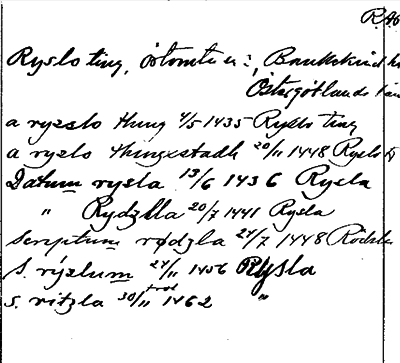 Ryslo ting, Östomta
Östergötlands
a ryzslo thing 4/5 1435 Ryslo ting
a ryzlo thingxstadh 20/11 1448 Ryslo
Datum rysla 13/6 1436 Rysla
" Rydzlla 20/7 1441 Rysla
Scriptum rødzla 24/7 1448 Rödzla
S. rýzlum 24/11 1456 Rysla
S. ritzla 30/11 1462 "